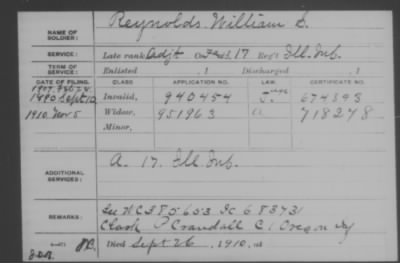 NAME OF SOLDIER: Reynolds, William S.
SERVICE: Late rank Adjt Co. F&S, 17 Reg't Ill. Inf.
TERM OF SERVICE: Enlisted , 1 Discharged , 1
DATE OF FILING. CLASS. APPLICATION NO. LAW. CERTIFICATE NO.
1907
1890 Sept 10 Invalid, 940454 June 674898
1910 Nov 5 Widow, 951963 " 718278
Minor,
ADDITIONAL SERVICES: A. 17. Ill Inf.
REMARKS: See WC 385653 Ic 683731
Clark P Crandall C 1 Oregon
Died Sept 26, 1910, at